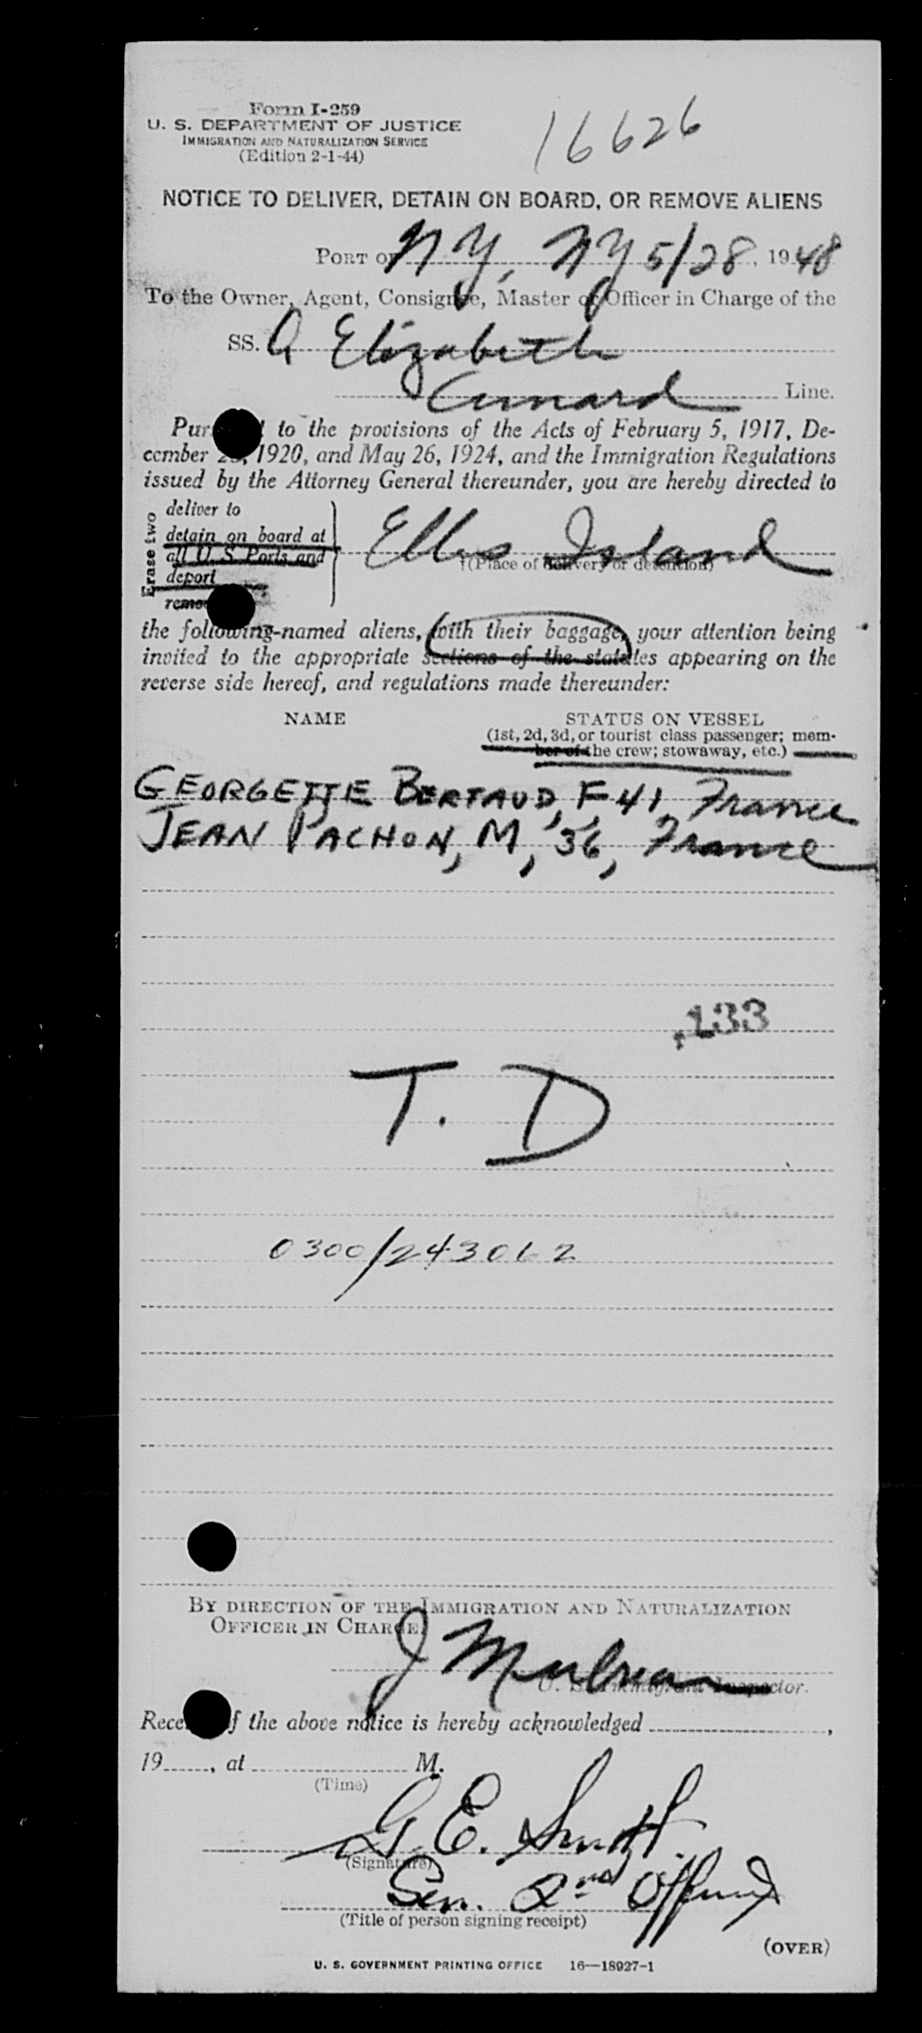 Form I-259
16626
U. S. DEPARTMENT OF JUSTICE
IMMIGRATION AND NATURALIZATION SERVICE
(Edition 2-1-44)
NOTICE TO DELIVER, DETAIN ON BOARD, OR REMOVE ALIENS
PORT OF NY, NY 5/28, 1948
To the Owner, Agent, Consignee, Master or Officer in Charge of the
SS. Q Elizabeth
Cunard Line.
to the provisions of the Acts of February 5, 1917, De-
cember 1920, and May 26, 1924, and the Immigration Regulations
issued by the Attorney General thereunder, you are hereby directed to
Erase two
deliver to
detain on board at
all U. S. Ports and
deport
Ellis Island
(Place of delivery or detention)
the following-named aliens, with their baggage, your attention being
invited to the appropriate sections of the statutes appearing on the
reverse side hereof, and regulations made thereunder:
NAME STATUS ON VESSEL
(1st, 2d, 3d, or tourist class passenger; mem-
ber of the crew; stowaway, etc.)
GEORGETTE BERTAUD, F, 41, France
JEAN PACHON, M, 36, France
133
T. D
0300/243012
BY DIRECTION OF THE IMMIGRATION AND NATURALIZATION
OFFICER IN CHARGE
J
U. S. Immigrant Inspector.
of the above notice is hereby acknowledged ,
19 , at M.
(Time)
G. E. Smith
(Signature)
Sen. 2nd Officer
(Title of person signing receipt)
(OVER)
U. S. GOVERNMENT PRINTING OFFICE 16—18927-1